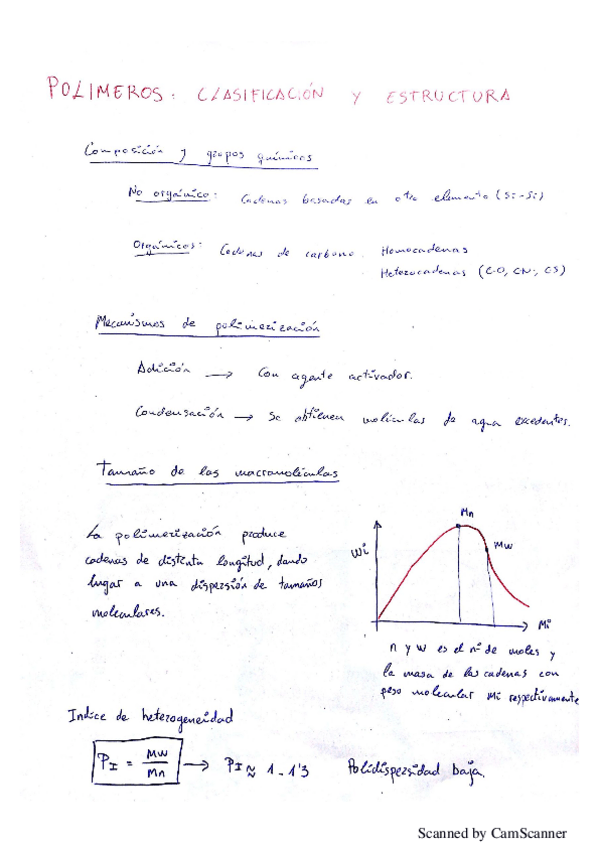 POLIMEROS: CLASIFICACIÓN Y ESTRUCTURA
Composición y grupos químicos
No orgánico: Cadenas basadas en otro elemento (Si-Si)
Orgánicos: Cadenas de carbono. Homocadenas
Heterocadenas (C-O, CN, CS)
Mecanismos de polimerización
Adición → Con agente activador.
Condensación → Se obtienen moléculas de agua excedentes.
Tamaño de las macromoléculas
La polimerización produce
cadenas de distinta longitud, dando
lugar a una dispersión de tamaños
moleculares.
Mn
Wi
Mw
Mi
n y w es el nº de moles y
la masa de las cadenas con
peso molecular Mi respectivamente
Indice de heterogeneidad
PI = Mw/Mn → PI ≈ 1 - 1'3 Polidispersidad baja.
Scanned by CamScanner